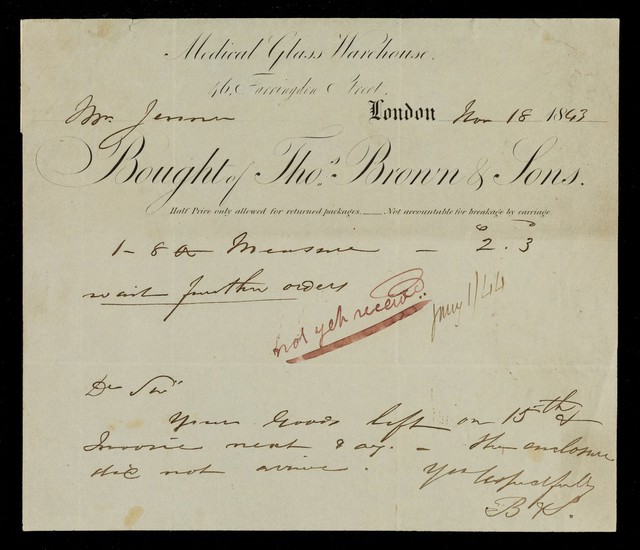 Medical Glass Warehouse.
46, Farringdon Street.
Mr. Jenner London Nov 18 1843
Bought of Thos. Brown & Sons.
Half Price only allowed for returned packages. Not accountable for breakage by carriage
1 - 8 Measure - 2. 3
wait further orders
not yet received. Jany 1/44
Dr Sir
Your Goods left on 15th &
Invoice next day. - the enclosure
did not arrive. Yrs respectfully
B & S.